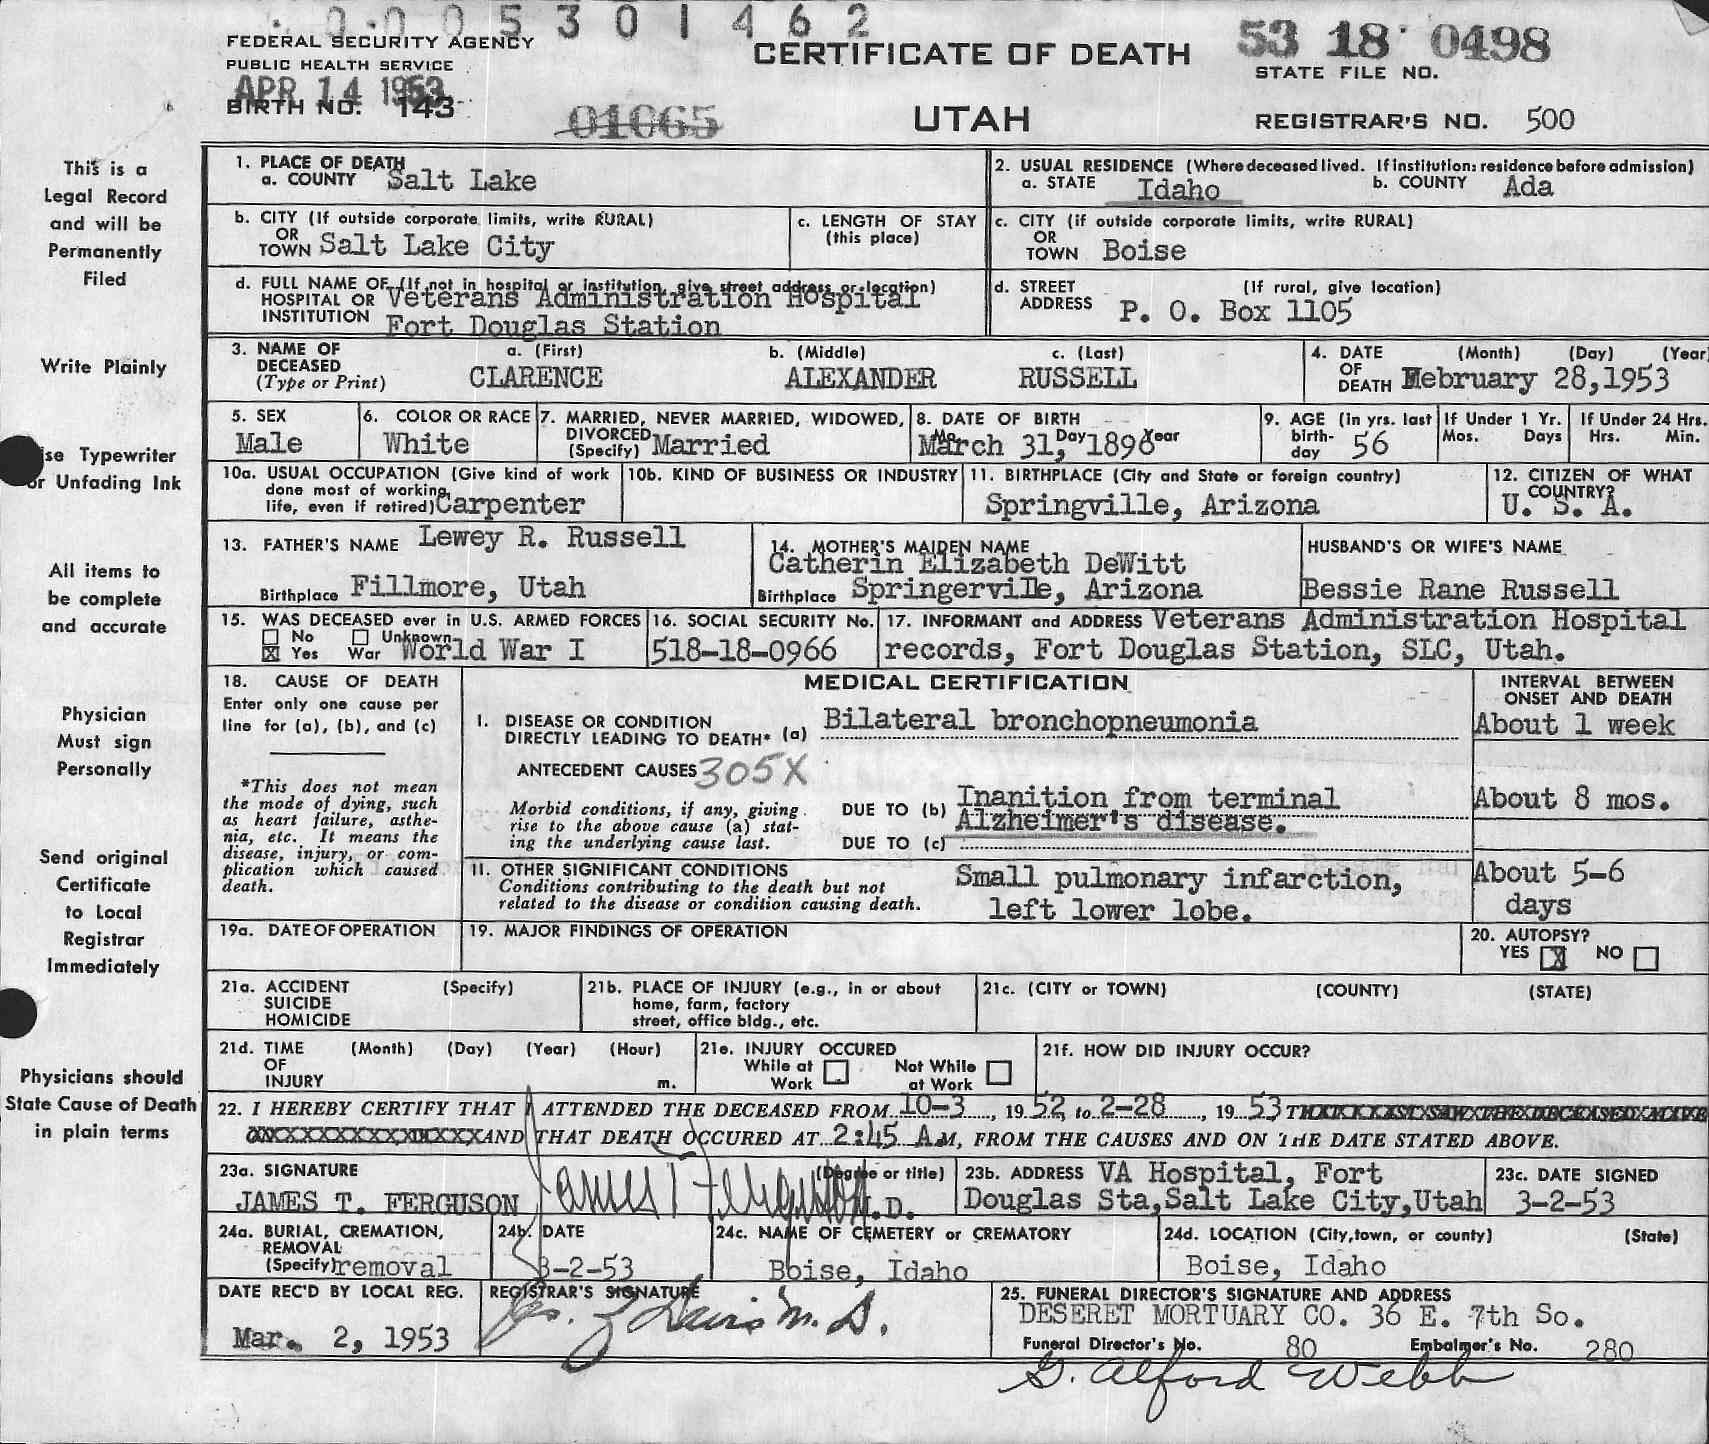 0005301462
FEDERAL SECURITY AGENCY
PUBLIC HEALTH SERVICE
APR 14 1953
BIRTH NO. 143
01065
CERTIFICATE OF DEATH
UTAH
53 18 0498
STATE FILE NO.
REGISTRAR'S NO. 500
This is a
Legal Record
and will be
Permanently
Filed
Write Plainly
se Typewriter
or Unfading Ink
All items to
be complete
and accurate
Physician
Must sign
Personally
Send original
Certificate
to Local
Registrar
Immediately
Physicians should
State Cause of Death
in plain terms
1. PLACE OF DEATH
a. COUNTY Salt Lake
2. USUAL RESIDENCE (Where deceased lived. If institution: residence before admission)
a. STATE Idaho b. COUNTY Ada
b. CITY (If outside corporate limits, write RURAL)
OR
TOWN Salt Lake City
c. LENGTH OF STAY
(this place)
c. CITY (if outside corporate limits, write RURAL)
OR
TOWN Boise
d. FULL NAME OF (If not in hospital or institution, give street address or location)
HOSPITAL OR Veterans Administration Hospital
INSTITUTION Fort Douglas Station
d. STREET (If rural, give location)
ADDRESS P. O. Box 1105
3. NAME OF a. (First) b. (Middle) c. (Last)
DECEASED
(Type or Print) CLARENCE ALEXANDER RUSSELL
4. DATE (Month) (Day) (Year
OF
DEATH February 28,1953
5. SEX
Male
6. COLOR OR RACE
White
7. MARRIED, NEVER MARRIED, WIDOWED,
DIVORCED
(Specify) Married
8. DATE OF BIRTH
Mo. Day Year
March 31, 1896
9. AGE (in yrs. last
birth-
day 56
If Under 1 Yr.
Mos. Days
If Under 24 Hrs.
Hrs. Min.
10a. USUAL OCCUPATION (Give kind of work
done most of working
life, even if retired) Carpenter
10b. KIND OF BUSINESS OR INDUSTRY
11. BIRTHPLACE (City and State or foreign country)
Springville, Arizona
12. CITIZEN OF WHAT
COUNTRY?
U. S. A.
13. FATHER'S NAME Lewey R. Russell
Birthplace Fillmore, Utah
14. MOTHER'S MAIDEN NAME
Catherin Elizabeth DeWitt
Birthplace Springerville, Arizona
HUSBAND'S OR WIFE'S NAME
Bessie Rane Russell
15. WAS DECEASED ever in U.S. ARMED FORCES
No Unknown
X Yes War World War I
16. SOCIAL SECURITY No.
518-18-0966
17. INFORMANT and ADDRESS Veterans Administration Hospital
records, Fort Douglas Station, SLC, Utah.
18. CAUSE OF DEATH
Enter only one cause per
line for (a), (b), and (c)
*This does not mean
the mode of dying, such
as heart failure, asthe-
nia, etc. It means the
disease, injury, or com-
plication which caused
death.
MEDICAL CERTIFICATION
INTERVAL BETWEEN
ONSET AND DEATH
I. DISEASE OR CONDITION
DIRECTLY LEADING TO DEATH* (a) Bilateral bronchopneumonia
About 1 week
ANTECEDENT CAUSES 305X
Morbid conditions, if any, giving
rise to the above cause (a) stat-
ing the underlying cause last.
DUE TO (b) Inanition from terminal
Alzheimer's disease.
DUE TO (c)
About 8 mos.
II. OTHER SIGNIFICANT CONDITIONS
Conditions contributing to the death but not
related to the disease or condition causing death.
Small pulmonary infarction,
left lower lobe.
About 5-6
days
19a. DATE OF OPERATION
19. MAJOR FINDINGS OF OPERATION
20. AUTOPSY?
YES X NO
21a. ACCIDENT (Specify)
SUICIDE
HOMICIDE
21b. PLACE OF INJURY (e.g., in or about
home, farm, factory
street, office bldg., etc.
21c. (CITY or TOWN) (COUNTY) (STATE)
21d. TIME (Month) (Day) (Year) (Hour)
OF
INJURY m.
21e. INJURY OCCURED
While at Not While
Work at Work
21f. HOW DID INJURY OCCUR?
22. I HEREBY CERTIFY THAT I ATTENDED THE DECEASED FROM 10-3, 1952, to 2-28, 1953
AND THAT DEATH OCCURED AT 2:45 A.M, FROM THE CAUSES AND ON THE DATE STATED ABOVE.
23a. SIGNATURE (Degree or title)
JAMES T. FERGUSON James T Ferguson M.D.
23b. ADDRESS VA Hospital, Fort
Douglas Sta,Salt Lake City,Utah
23c. DATE SIGNED
3-2-53
24a. BURIAL, CREMATION,
REMOVAL
(Specify) removal
24b. DATE
3-2-53
24c. NAME OF CEMETERY or CREMATORY
Boise, Idaho
24d. LOCATION (City,town, or county) (State)
Boise, Idaho
DATE REC'D BY LOCAL REG.
Mar. 2, 1953
REGISTRAR'S SIGNATURE
Davis M. D.
25. FUNERAL DIRECTOR'S SIGNATURE AND ADDRESS
DESERET MORTUARY CO. 36 E. 7th So.
Funeral Director's No. 80 Embalmer's No. 280
G. Alford Webb